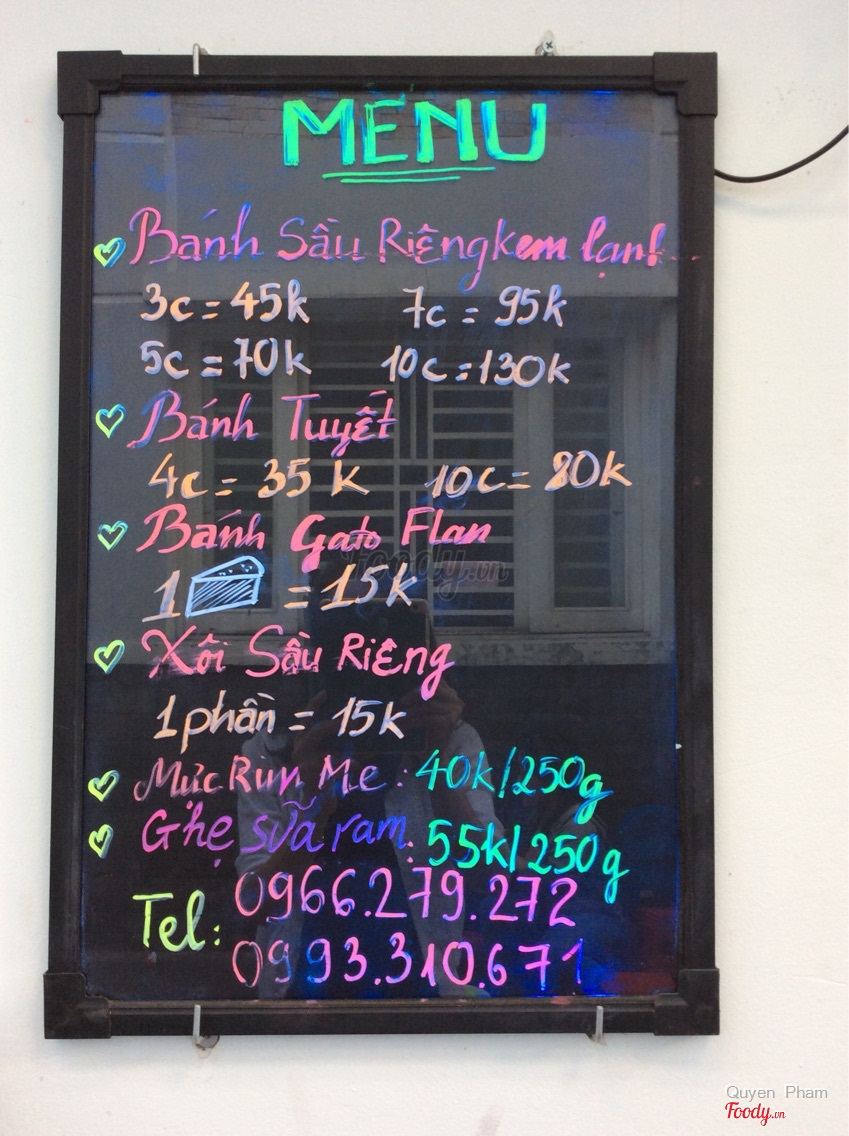 MENU
Bánh Sầu Riêng kem lạnh...
3c = 45k 7c = 95k
5c = 70k 10c = 130k
Bánh Tuyết
4c = 35k 10c = 80k
Bánh Gato Flan
1 = 15k
Foody.vn
Xôi Sầu Riêng
1 phần = 15k
Mực Rim Me : 40k/250g
Ghẹ sữa ram : 55k/250g
Tel: 0966.279.272
0993.310.671
Quyen Pham
Foody.vn